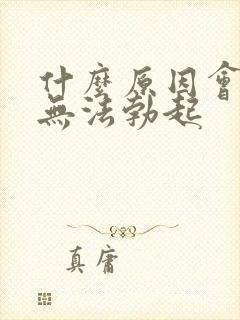 什麼原因會
無法勃起
真庸